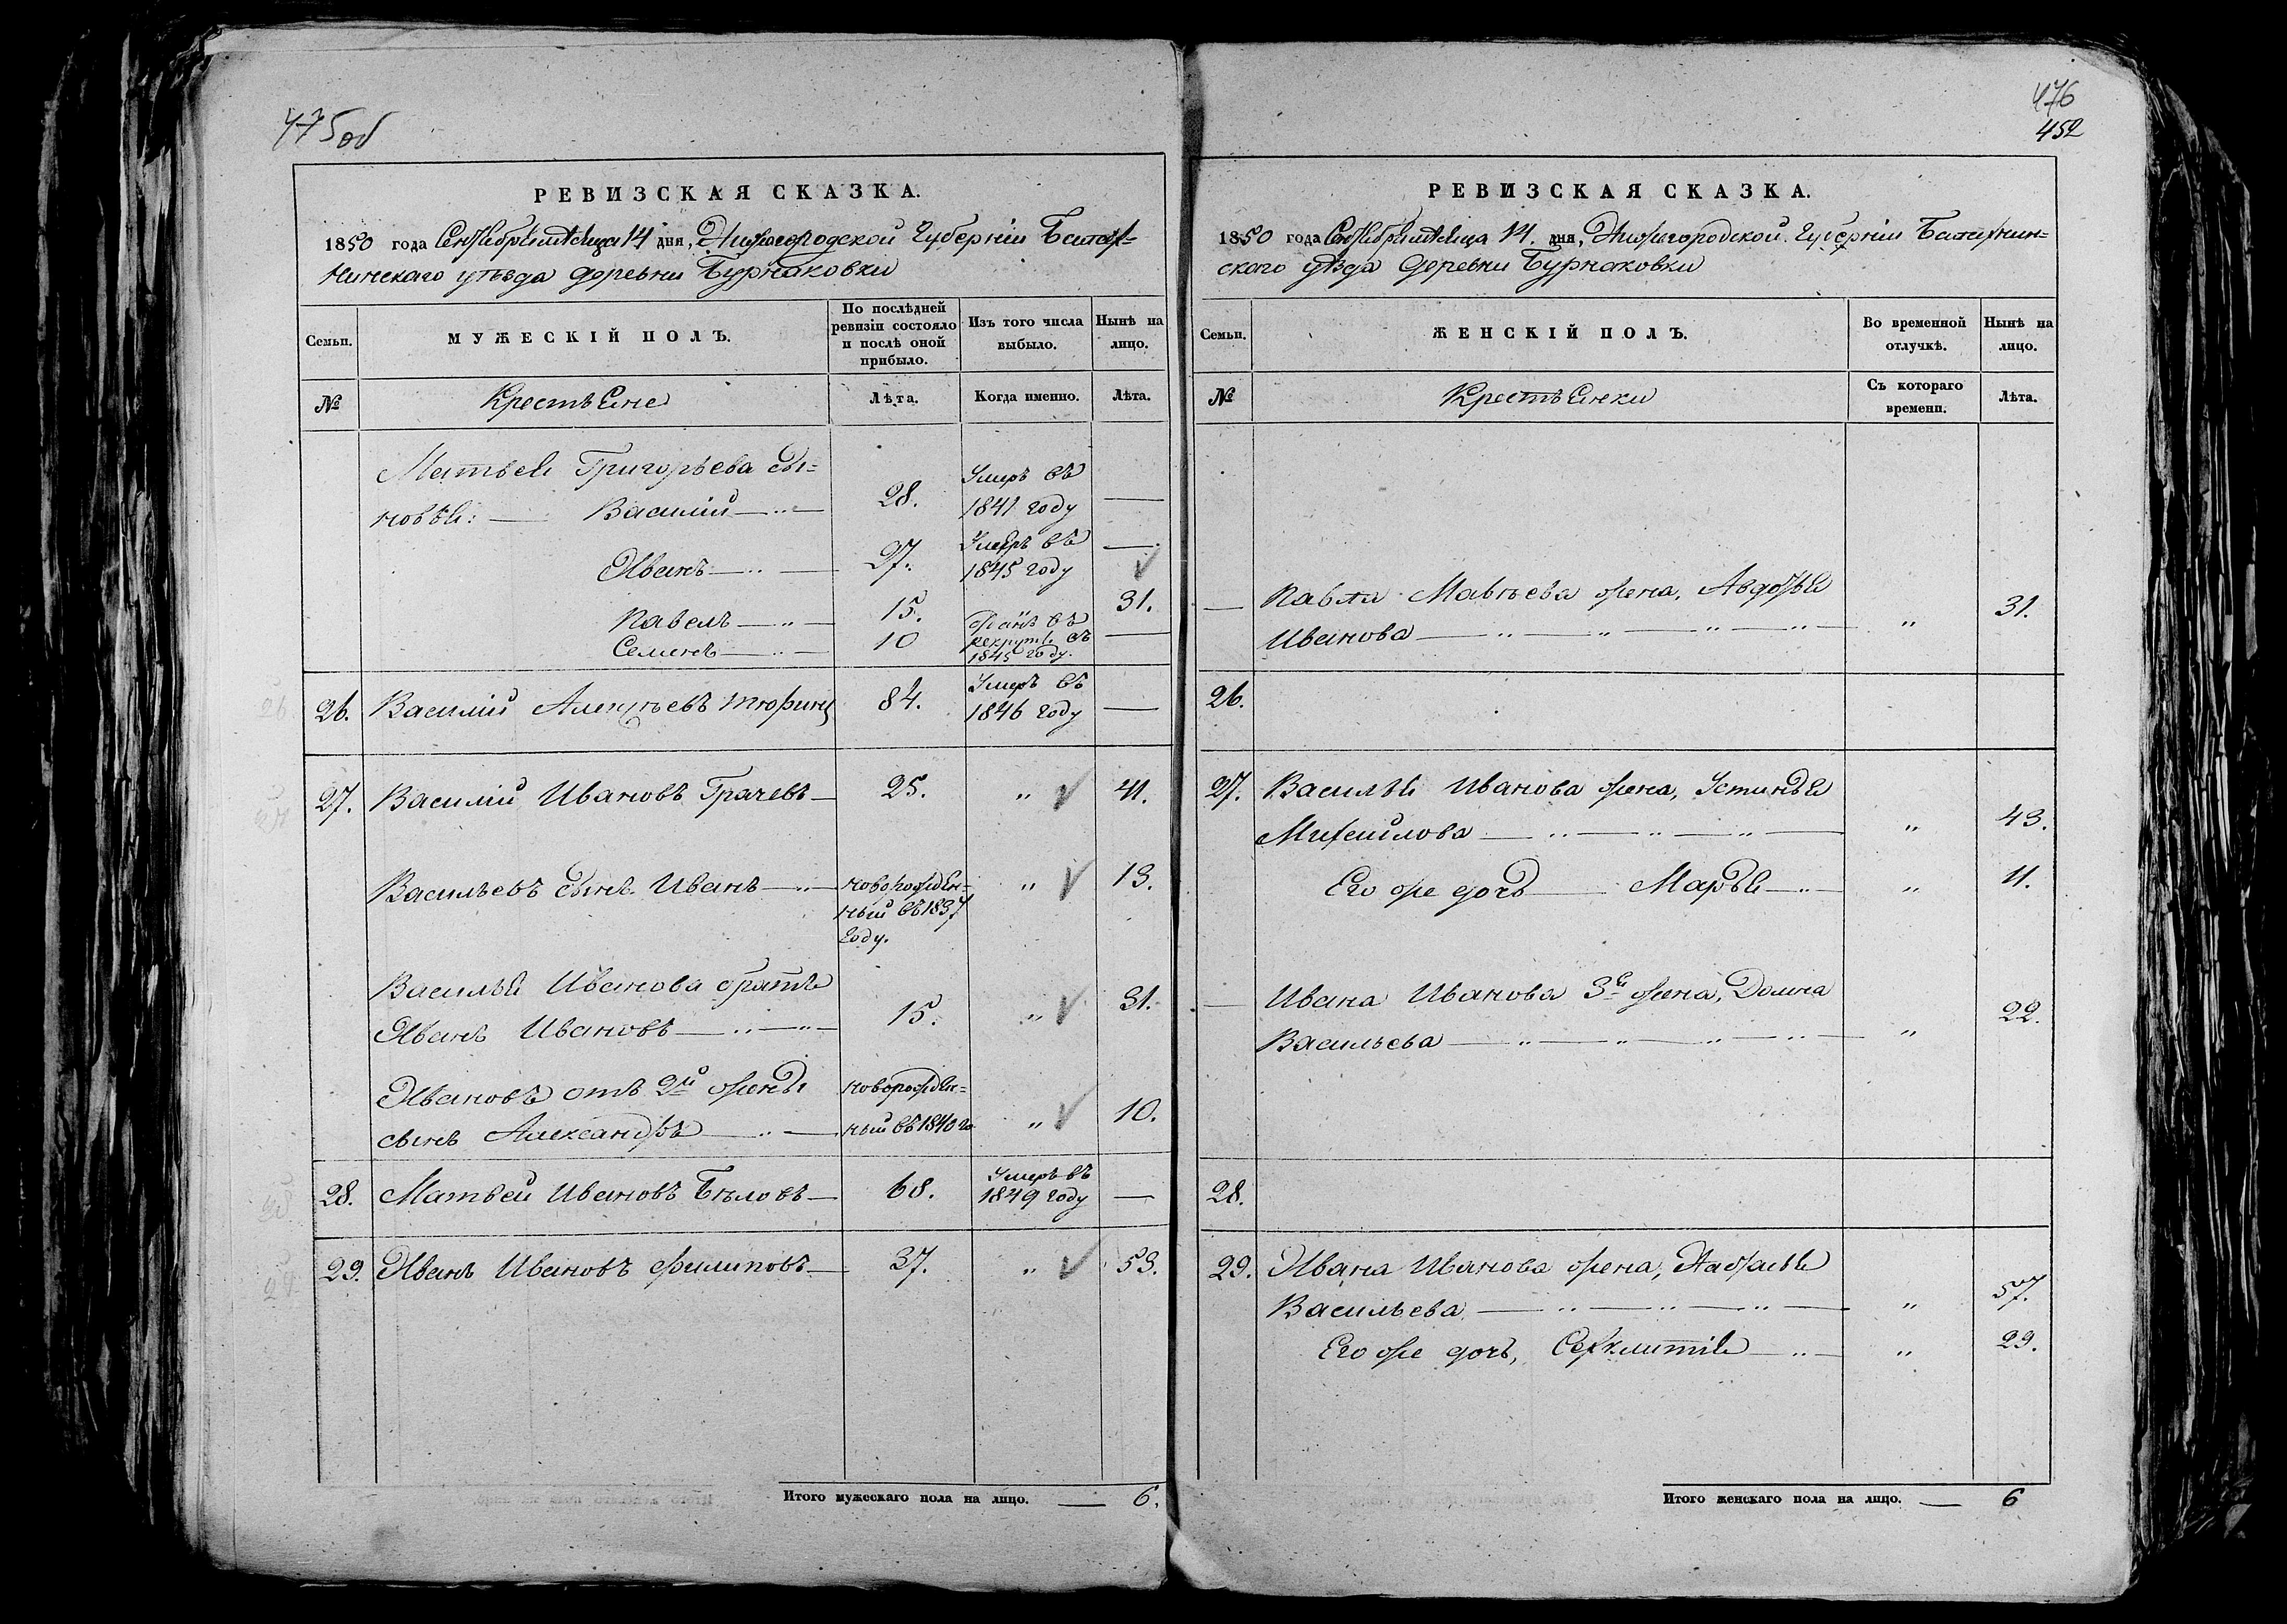 475об
РЕВИЗСКАЯ СКАЗКА.
1850 года Сентября месяца 14 дня, Нижегородской Губерніи Балах-
нинскаго уѣзда деревни Бурнаковки
Семьи. МУЖЕСКІЙ ПОЛЪ. По послѣдней ревизіи состояло и послѣ оной прибыло. Изъ того числа выбыло. Нынѣ на лицо.
№ Крестьяне Лѣта. Когда именно. Лѣта.
Матвея Григорьева сы- Умеръ въ
новья: Василій 28. 1841 году —
Иванъ 27. Умеръ въ 1845 году —
Павелъ 15. 31.
Семенъ 10 Отданъ въ рекруты въ 1845 году. —
26. Василій Алексѣевъ Тюринъ 84. Умеръ въ 1846 году —
27. Василій Ивановъ Грачевъ 25. " 41.
Васильевъ сынъ Иванъ новорожден- " 13.
ный въ 1837
году.
Василья Иванова братъ
Иванъ Ивановъ 15. " 31.
Ивановъ отъ 2й жены новорожден-
сынъ Александръ ный въ 1840 го " 10.
28. Матвей Ивановъ Бѣловъ 68. Умеръ въ 1849 году —
29. Иванъ Ивановъ Филиповъ 37. " 53.
Итого мужескаго пола на лицо. — 6.
476
452
РЕВИЗСКАЯ СКАЗКА.
1850 года Сентября месяца 14. дня, Нижегородской Губерніи Балахнин-
скаго уѣзда деревни Бурнаковки
Семьи. ЖЕНСКІЙ ПОЛЪ. Во временной отлучкѣ. Нынѣ на лицо.
№ Крестьянки Съ котораго времени. Лѣта.
— Павла Матвѣева жена, Авдотья
Иванова " 31.
26.
27. Василья Иванова жена, Устинья
Михайлова " 43.
Его же дочь Марья " 11.
— Ивана Иванова 3я жена, Домна
Васильева " 22.
28.
29. Ивана Иванова жена,
Васильева " 57.
Его же дочь, " 29.
Итого женскаго пола на лицо. — 6